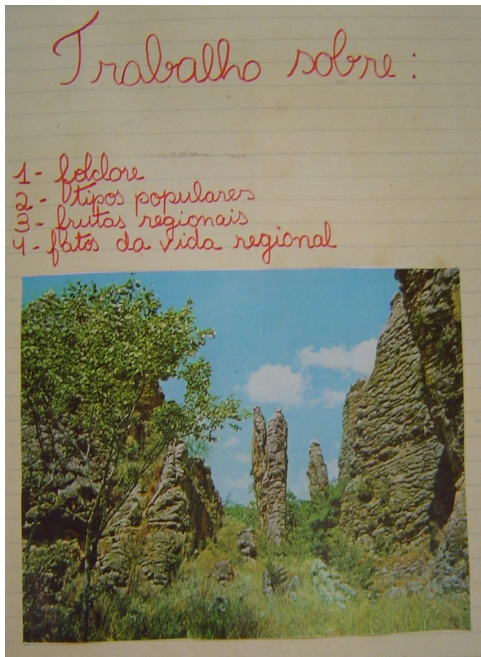 Trabalho sobre:
1 - folclore
2 - tipos populares
3 - frutas regionais
4 - fatos da vida regional